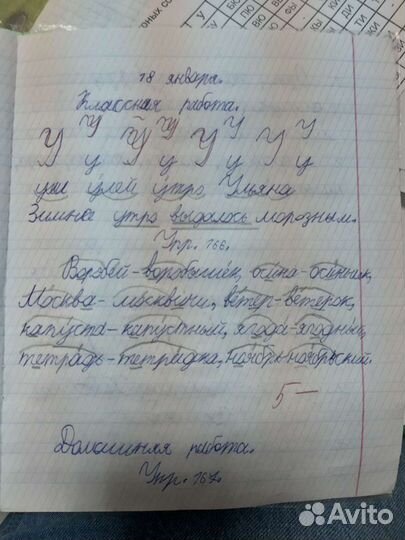 18 января.
Классная работа.
У У У У У У У У
у у у у
уж улей утро Ульяна
Зимнее утро выдалось морозным.
Упр. 166.
Воробей-воробышек, осина-осинник,
Москва-москвичи, ветер-ветерок,
капуста-капустный, ягода-ягодный,
тетрадь-тетрадка, ноябрь-ноябрьский.
5-
Домашняя работа.
Упр. 167.
Avito